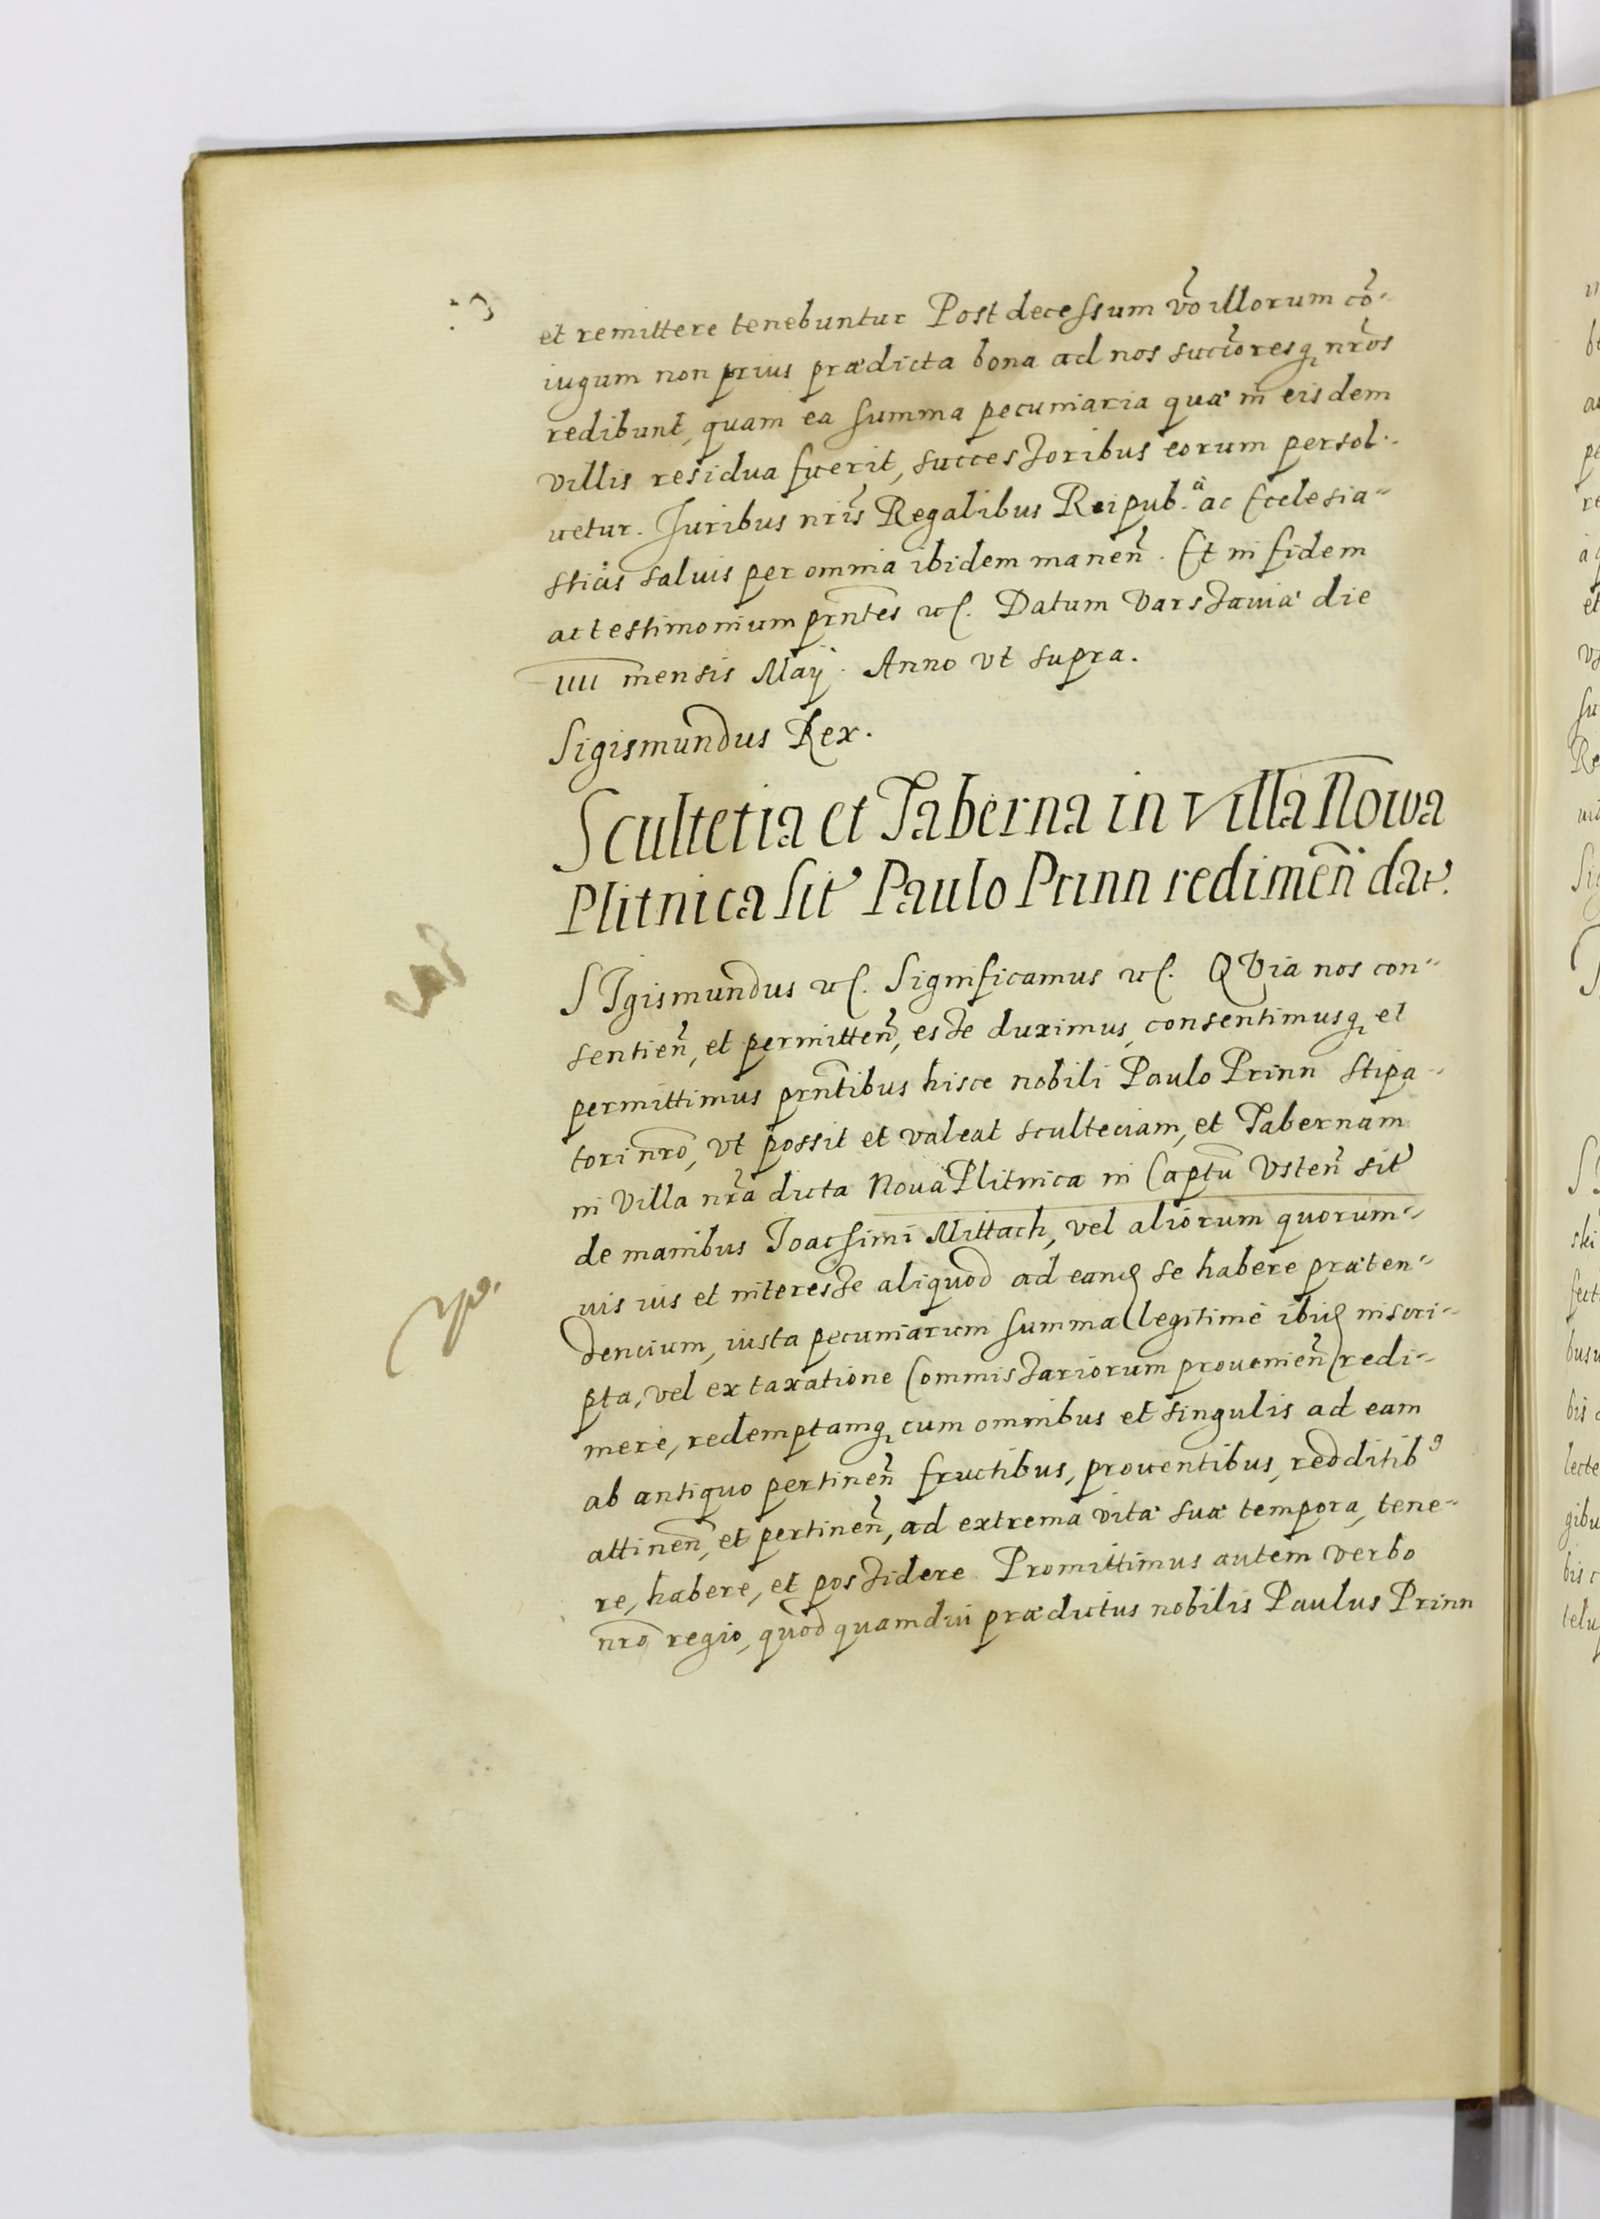 et remittere tenebuntur Post decessum vō illorum cō-
iugum non prius prædicta bona ad nos succōresq nrōs
redibunt, quam ea summa pecuniaria quæ in eisdem
villis residua fuerit, successoribus eorum persol-
uetur. Juribus nrīs Regalibus Reipub. ac Ecclesia-
sticis saluis per omnia ibidem manen̄. Et in fidem
ac testimonium prn̄tes etc. Datum Varssauiæ die
IIII mensis Maij. Anno vt supra.
Sigismundus Rex.
Scultetia et Taberna in villa Nowa
Plitnica sit Paulo Prinn redimen̄ dat.
SIgismundus etc. Significamus etc. QVia nos con-
sentien̄, et permitten̄, esse duximus, consentimusq et
permittimus prn̄tibus hisce nobili Paulo Prinn stipa-
tori nrō, vt possit et valeat sculteciam, et Tabernam
in Villa nrā dicta Noua Plitnica in Captū Vsten̄ sit
de manibus Joachimi Mittach, vel aliorum quorum-
uis ius et interesse aliquod ad eand se habere præten-
dencium, iusta pecuniarum summa (legitime ibid inscri-
pta, vel ex taxatione Commissariorum prouenien̄) redi-
mere, redemptamq cum omnibus et singulis ad eam
ab antiquo pertinen̄ fructibus, prouentibus, redditib9
attinen̄, et pertinen̄, ad extrema vitæ suæ tempora, tene-
re, habere, et possidere. Promittimus autem verbo
nrō regio, quod quamdiu prædictus nobilis Paulus Prinn